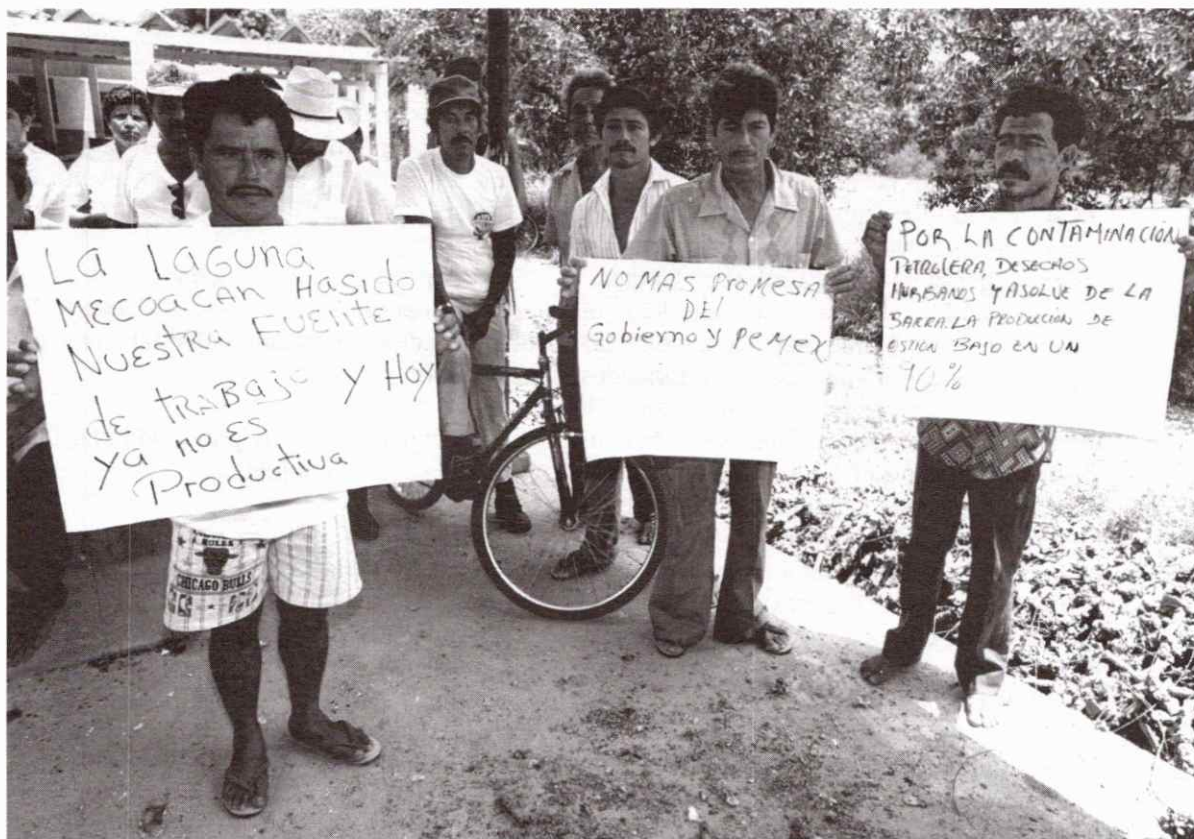 LA LAGUNA
MECOACAN HASIDO
NUESTRA FUENTE
de TRABAJO Y HOY
ya no ES
Productiva
NO MAS PROMESA
DEL
Gobierno y PEMEX
POR LA CONTAMINACION
PETROLERA, DESECHOS
HURBANOS Y ASOLVE DE LA
BARRA. LA PRODUCIÓN DE
OSTION BAJO EN UN
90%
BULLS
CHICAGO BULLS